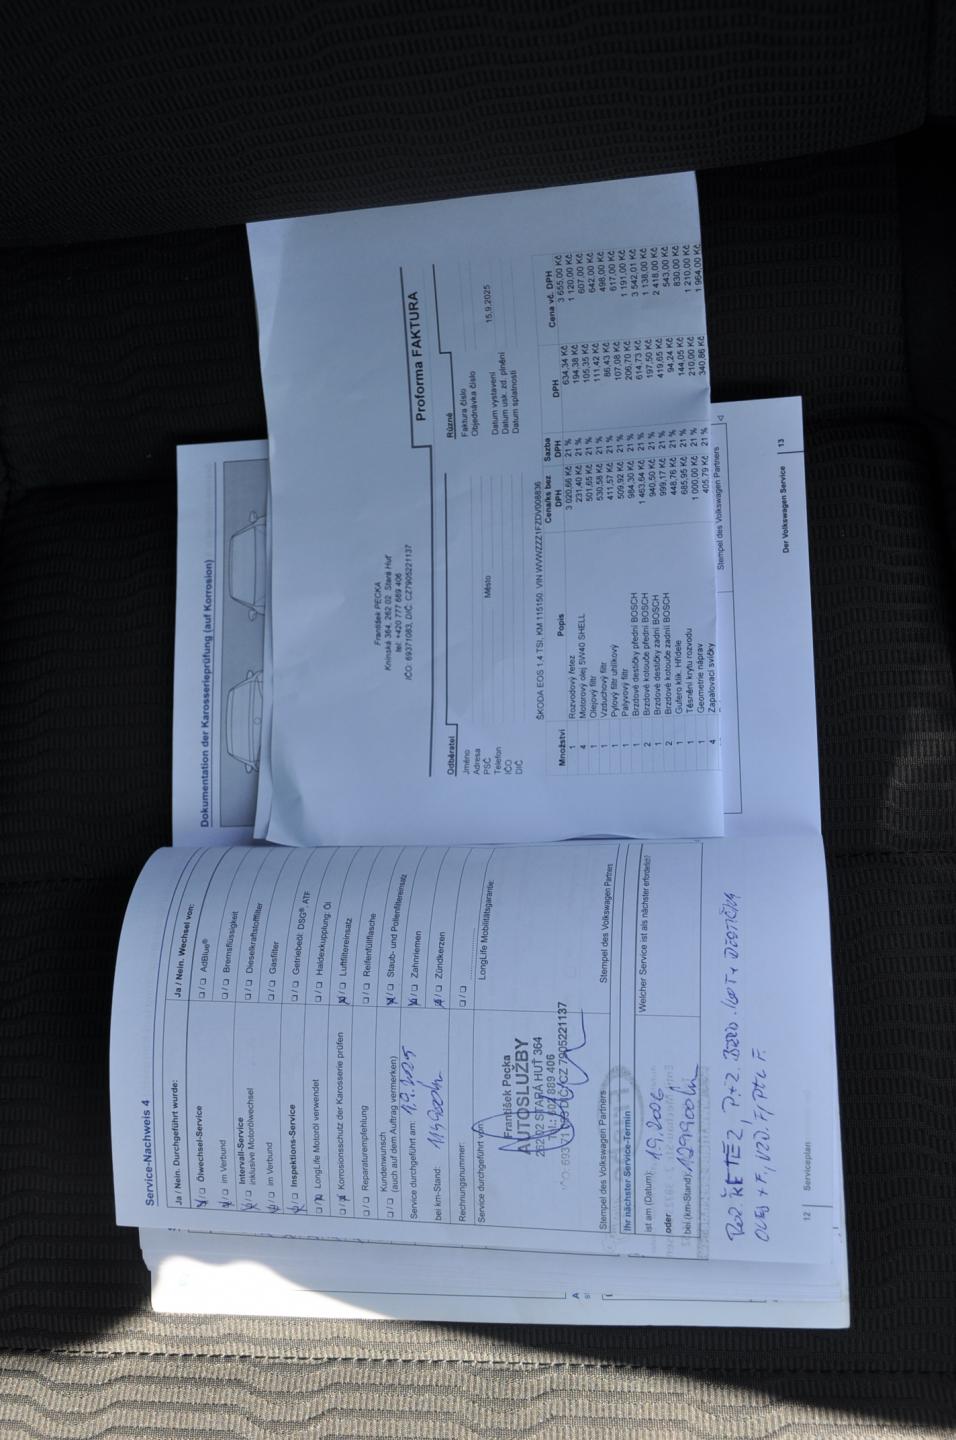 Service-Nachweis 4
Ja / Nein. Durchgeführt wurde:
Ölwechsel-Service
im Verbund
Intervall-Service
inklusive Motorölwechsel
im Verbund
Inspektions-Service
LongLife Motoröl verwendet
Korrosionsschutz der Karosserie prüfen
Reparaturempfehlung
Kundenwunsch
(auch auf dem Auftrag vermerken)
Service durchgeführt am: 1.9.2025
bei km-Stand:
Rechnungsnummer:
Service durchgeführt von
František Pecka
AUTOSLUŽBY
262 02 STARÁ HUŤ 364
Stempel des Volkswagen Partners
Ja / Nein. Wechsel von:
AdBlue®
Bremsflüssigkeit
Dieselkraftstofffilter
Gasfilter
Getriebeöl: DSG®, ATF
Haldexkupplung: Öl
Luftfiltereinsatz
Reifenfüllflasche
Staub- und Pollenfiltereinsatz
Zahnriemen
Zündkerzen
LongLife Mobilitätsgarantie:
Stempel des Volkswagen Partners
Ihr nächster Service-Termin
ist am (Datum): 1.9.2026
oder
bei (km-Stand): 129900 km
Welcher Service ist als nächster erforderlich?
12 | Serviceplan
Dokumentation der Karosserieprüfung (auf Korrosion)
František PECKA
Knínská 364, 262 02 Stará Huť
tel: +420 777 689 406
IČO: 69371083, DIČ: CZ7905221137
Proforma FAKTURA
Odběratel
Jméno
Adresa
PSČ Město
Telefon
IČO
DIČ
Různé
Faktura číslo
Objednávka číslo
Datum vystavení 15.9.2025
Datum usk. zd. plnění
Datum splatnosti
ŠKODA EOS 1.4 TSI, KM 115150, VIN WVWZZZ1FZDV008836
Množství Popis Cena/ks bez DPH Sazba DPH DPH Cena vč. DPH
1 Rozvodový řetez 3 020,66 Kč 21 % 634,34 Kč 3 655,00 Kč
4 Motorový olej 5W40 SHELL 231,40 Kč 21 % 194,38 Kč 1 120,00 Kč
1 Olejový filtr 501,65 Kč 21 % 105,35 Kč 607,00 Kč
1 Vzduchový filtr 530,58 Kč 21 % 111,42 Kč 642,00 Kč
1 Pylový filtr uhlíkový 411,57 Kč 21 % 86,43 Kč 498,00 Kč
1 Palyvový filtr 509,92 Kč 21 % 107,08 Kč 617,00 Kč
1 Brzdové destičky přední BOSCH 984,30 Kč 21 % 206,70 Kč 1 191,00 Kč
2 Brzdové kotouče přední BOSCH 1 463,64 Kč 21 % 614,73 Kč 3 542,01 Kč
1 Brzdové destičky zadní BOSCH 940,50 Kč 21 % 197,50 Kč 1 138,00 Kč
2 Brzdové kotouče zadní BOSCH 999,17 Kč 21 % 419,65 Kč 2 418,00 Kč
1 Gufero klik. Hřídele 448,76 Kč 21 % 94,24 Kč 543,00 Kč
1 Těsnění krytu rozvodu 685,95 Kč 21 % 144,05 Kč 830,00 Kč
1 Geometrie náprav 1 000,00 Kč 21 % 210,00 Kč 1 210,00 Kč
4 Zapalovací svíčky 405,79 Kč 21 % 340,86 Kč 1 964,00 Kč
Stempel des Volkswagen Partners
Der Volkswagen Service | 13